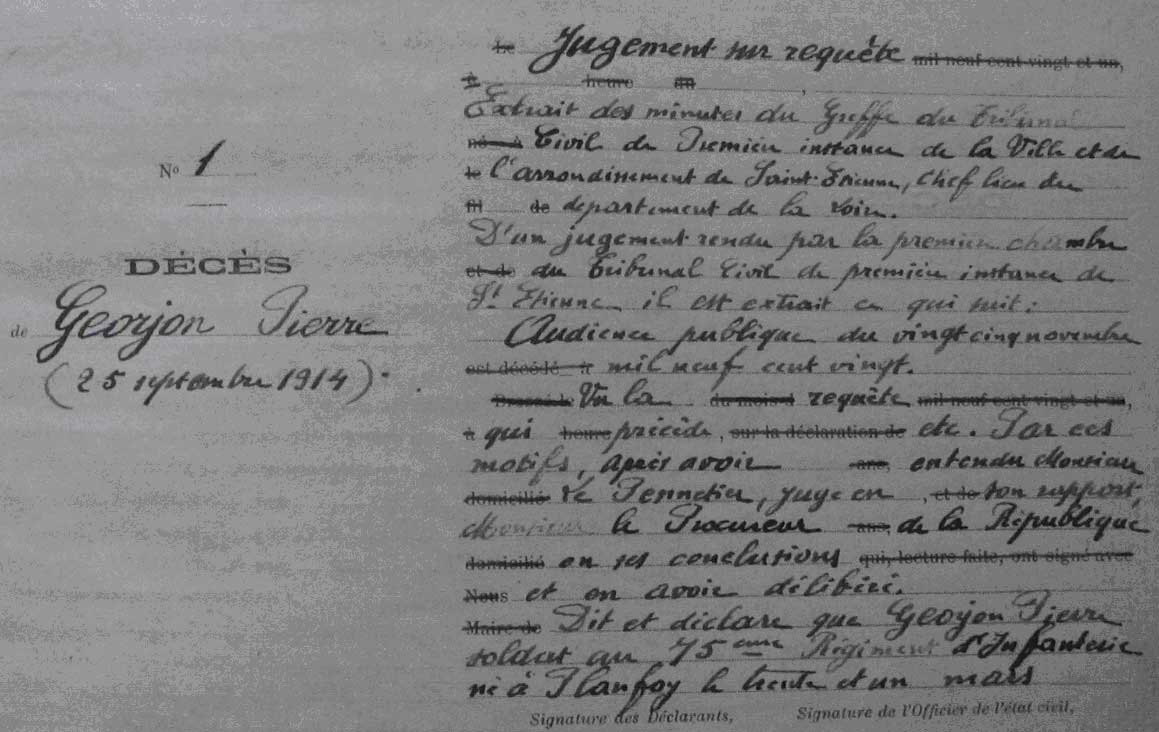 No 1
DÉCÈS
de Georjon Pierre
(25 septembre 1914).
Le Jugement sur requête mil neuf cent vingt et un,
à heure du ,
Extrait des minutes du Greffe du Tribunal
né à Civil de Première instance de la Ville et de
le l'arrondissement de Saint-Etienne, chef lieu du
fil de département de la Loire.
D'un jugement rendu par la première chambre
et de du Tribunal Civil de première instance de
St Etienne il est extrait ce qui suit :
Audience publique du vingt cinq novembre
est décédé à mil neuf cent vingt.
Dressé le Vu la du mois d requête mil neuf cent vingt et un,
à qui heure précède, sur la déclaration de etc. Par ces
motifs, après avoir ans, entendu Monsieur
domicilié Le Pennetier, juge en , et de son rapport,
Monsieur le Procureur ans, de la République
domicilié en ses conclusions qui, lecture faite, ont signé avec
Nous et en avoir délibéré.
Maire de Dit et déclare que Georjon Pierre
soldat au 75 eme Régiment d'Infanterie
né à Planfoy le trente et un mars
Signature des Déclarants, Signature de l'Officier de l'état civil,